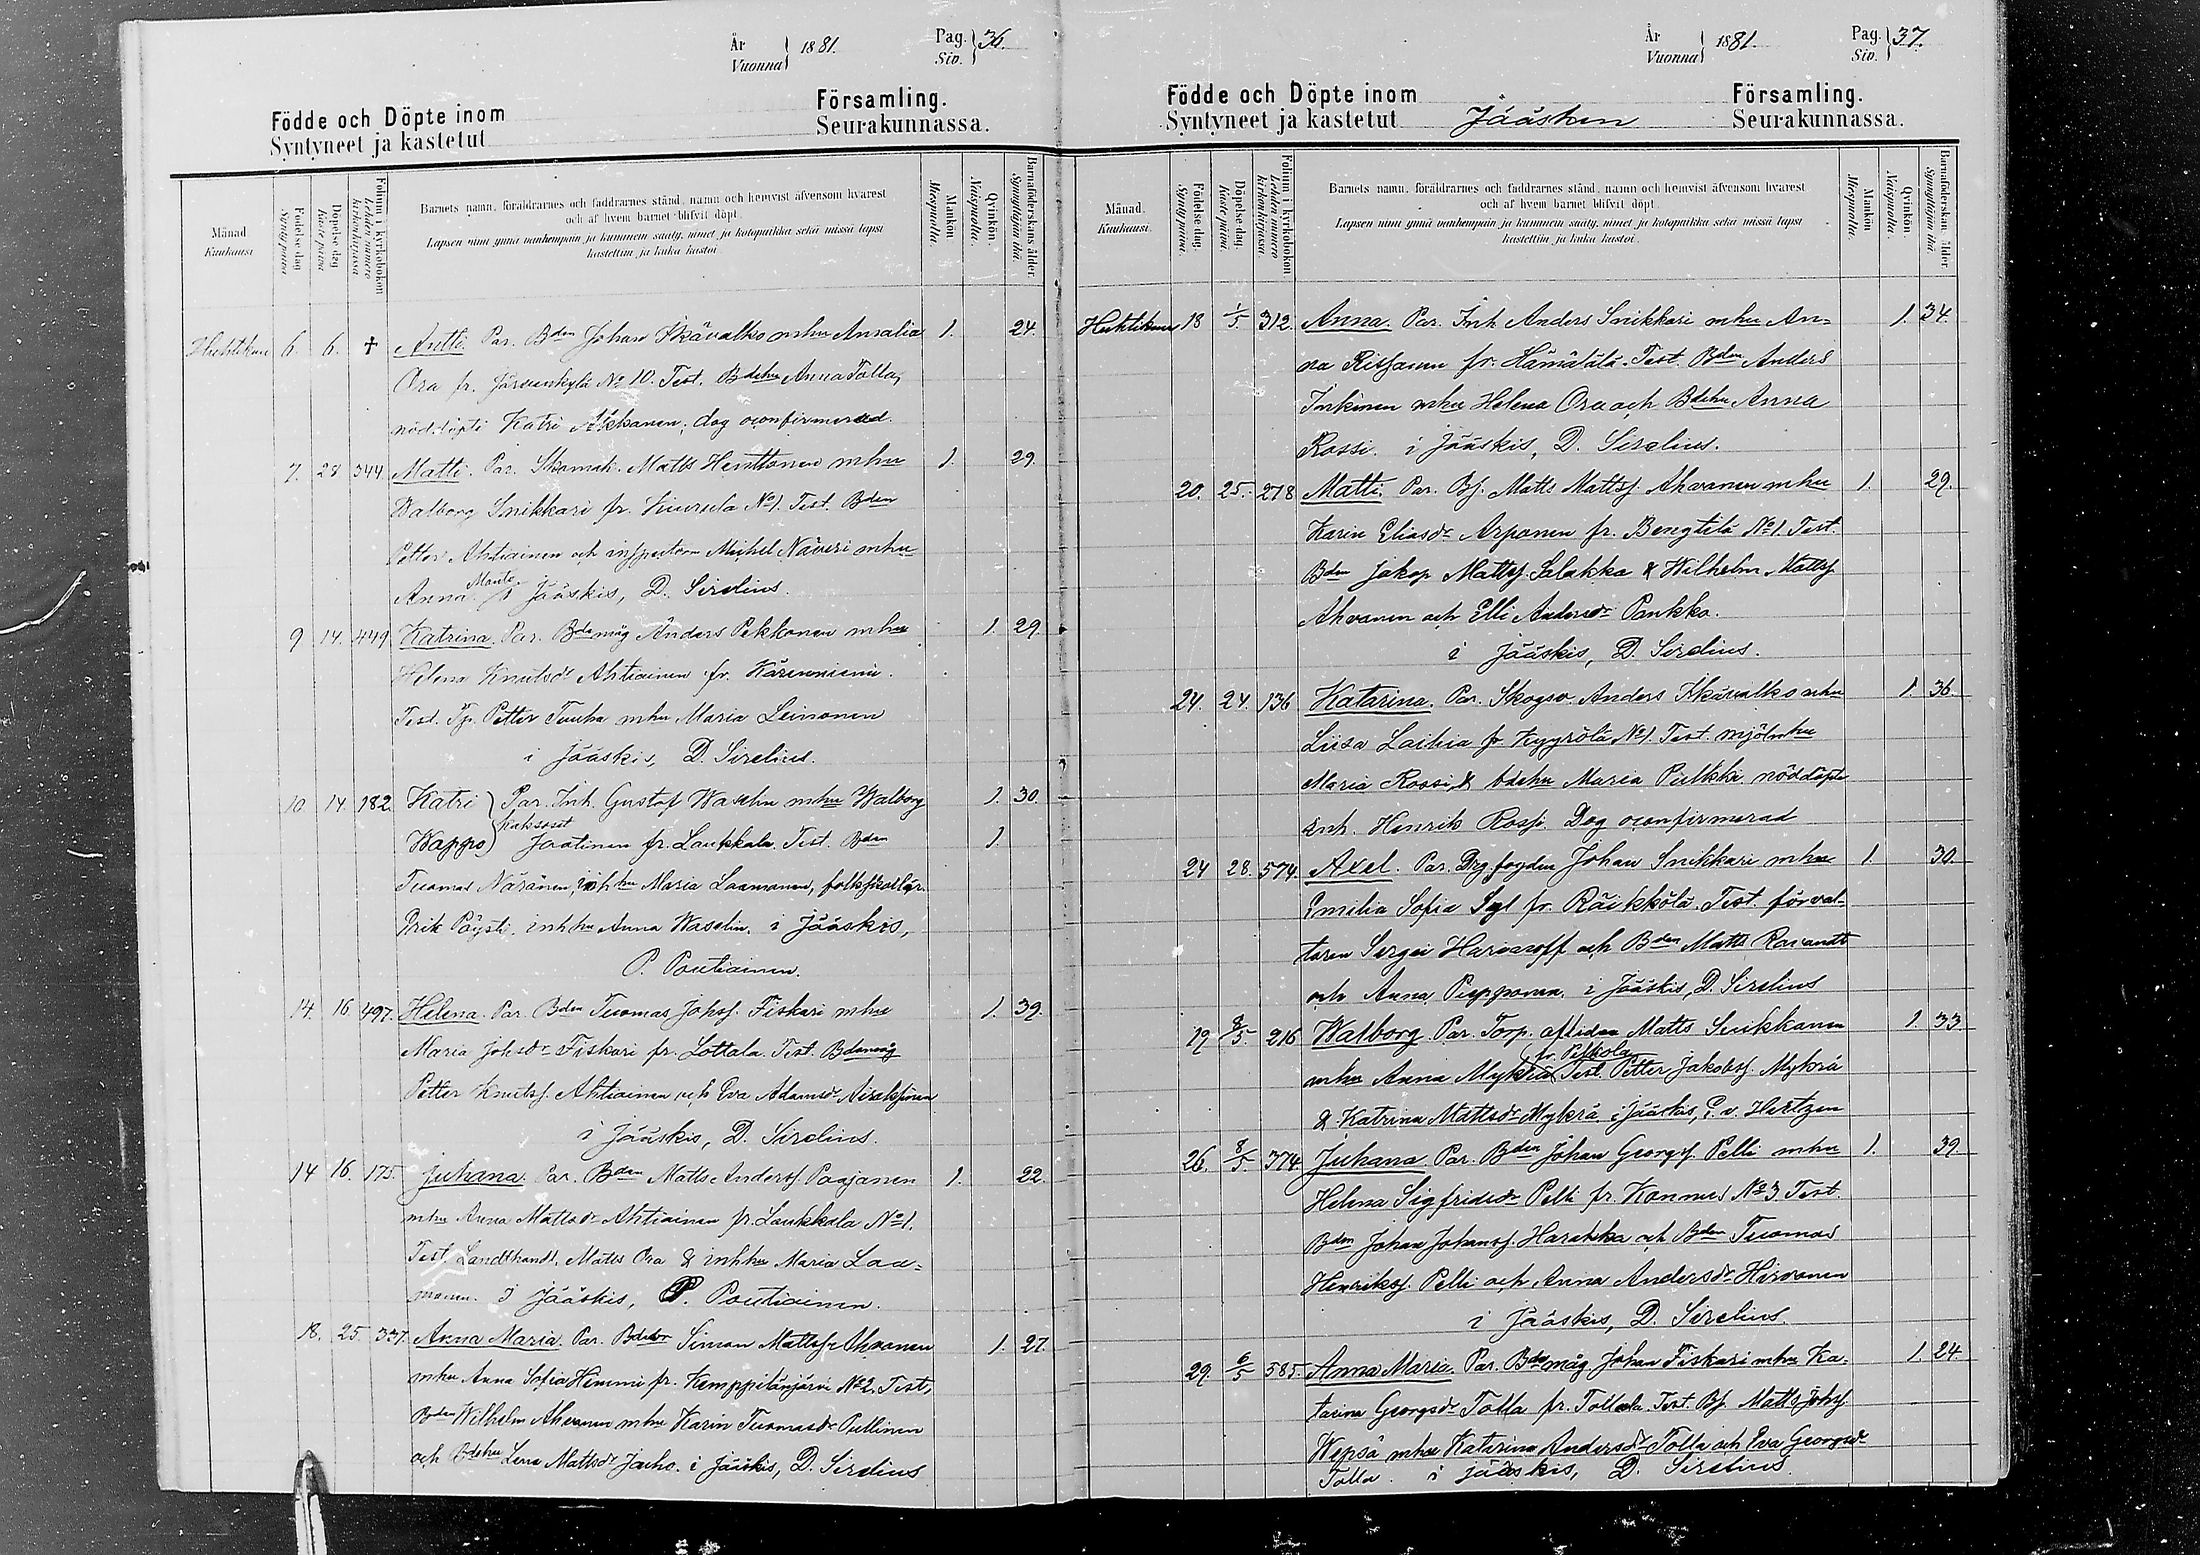 År Vuonna } 1881. Pag. Siv. } 36.
Födde och Döpte inom Församling.
Syntyneet ja kastetut Seurakunnassa.
Månad. Kuukausi
Födelse dag Syntypäivä
Döpelse dag Kastepäivä
Folium i kyrkoboken Lehden numero kirkonkirjassa
Barnets namn, föräldrarnes och faddrarnes stånd, namn och hemvist äfvensom hvarest
och af hvem barnet blifvit döpt.
Lapsen nimi ynnä vanhempain ja kummein sääty, nimet ja kotopaikka sekä missä lapsi
kastettiin ja kuka kastoi.
Mankön Miespuolia.
Qvinkön. Naispuolia.
Barnaföderskans ålder. Synnyttäjän ikä.
Huhtikuu 6. 6. † Antti. Par. Bden Johan Ikävalko mhu Amalia 1. 24.
Ora fr. Järvenkylä No 10. Test. Bdehu Anna Tolla,
nöddöpte Katri Akkanen, dog oconfirmerad.
7. 28 344 Matti. Par. Skomak. Matts Henttonen mhu 1. 29.
Walborg Snikkari fr. No 1. Test. Bden
Petter Ahtiainen och inspectorn Michel Näveri mhu
Anna i Jääskis, D. Sirelius.
9 14. 449 Katrina. Par. Bdemåg Anders Pekkonen mhu 1. 29.
Helena Knutsdr Ahtiainen fr. Kärenniemi.
Test. Tp. Petter Tuuha mhu Maria Leinonen
i Jääskis, D. Sirelius.
10. 14. 182. Katri } Par. Inh. Gustaf Waselin mhu Walborg 1. 30.
kaksoset
Wappo } Jaatinen fr. Laukkala. Test. Bden 1.
Tuomas Näränen, inhhu Maria Laamanen, folkskollär.
Erik Pöysti, inhhu Anna Waselin. i Jääskis,
P. Poutiainen.
14. 16. 497. Helena. Par. Bden Tuomas Johsf. Fiskari mhu 1. 39.
Maria Johsdr Fiskari fr. Lottala. Test. Bdemåg
Petter Knutsf. Ahtiainen och Eva Adamsdr
i Jääskis, D. Sirelius.
14 16. 175. Juhana. Par. Bden Matts Andersf. Paajanen 1. 22.
mhu Anna Mattsdr Ahtiainen fr. Laukkala No 1.
Test. Landthandl. Matts Ora & inhhu Maria Laa-
manen. I Jääskis, P. Poutiainen.
18. 25. 337. Anna Maria. Par. Bdebr Simon Mattsf. Ahvonen 1. 27.
mhu Anna Sofia Himmi fr. Kemppilänjärvi No 2. Test,
Bden Wilhelm Ahvonen mhu Karin Tuomasdr Pullinen
och Bdehu Lena Mattsdr Jauho. i Jääskis, D. Sirelius
År Vuonna } 1881. Pag. Siv. } 37.
Födde och Döpte inom Församling.
Syntyneet ja kastetut Jääsken Seurakunnassa.
Månad. Kuukausi.
Födelse dag. Syntypäivä.
Döpelse dag. Kastepäivä.
Folium i kyrkoboken. Lehden numero kirkonkirjassa.
Barnets namn, föräldrarnes och faddrarnes stånd, namn och hemvist äfvensom hvarest
och af hvem barnet blifvit döpt.
Lapsen nimi ynnä vanhempain ja kummein sääty, nimet ja kotopaikka sekä missä lapsi
kastettiin ja kuka kastoi.
Mankön Miespuolia.
Qvinkön. Naispuolia.
Barnaföderskan. ålder. Synnyttäjän ikä.
Huhtikuu 18 1/5. 312. Anna. Par. Inh. Anders Snikkari mhu An- 1. 34.
na Ritsanen fr. Hämälälä. Test. Bden Anders
Inkinen mhu Helena Ora och Bdehu Anna
Rossi. i Jääskis, D. Sirelius.
20. 25. 278 Matti. Par. Bf. Matts Mattsf. Ahvonen mhu 1. 29.
Karin Eliasdr Arponen fr. Bengtilä No 1. Test.
Bden Jakop Mattsf. Salakka & Wilhelm Mattsf
Ahvonen och Elli Andersdr Pankko.
i Jääskis, D. Sirelius.
24. 24. 136 Katarina. Par. Skogsv. Anders Ikävalko mhu 1. 36.
Liisa Laihia fr Kyyrölä No 1. Test. mjölnhu
Maria Rossi, & bdehu Maria Pulkka nöddöpte
inh. Henrik Rossi. Dog oconfirmerad
24 28. 574. Axel. Par. Drgfogden Johan Snikkari mhu 1. 30.
Emilia Sofia Syl fr. Räikkölä. Test. förval-
taren Sergei Harvaroff och Bden Matts Ravantti
och Anna Pupponen. i Jääskis, D. Sirelius
19 8/5. 216 Walborg. Par. Torp. afliden Matts Suikkanen 1. 33
fr. Pelkola
mhu Anna Mykrä Test. Petter Jakobsf. Mykrä
& Katrina Mattsdr Mykrä. i Jääskis, E. v. Hertzen
26. 8/5 374. Juhana. Par. Bden Johan Georgsf. Pelli mhu 1. 39.
Helena Sigfridsdr Pelli fr. Konnus No 3. Test.
Bden Johan Johansf. Harakka och Bden Tuomas
Henriksf. Pelli och Anna Andersdr Hirvonen
i Jääskis, D. Sirelius.
29. 6/5 585. Anna Maria. Par. Bdemåg Johan Fiskari mhu Ka- 1. 24.
tarina Georgsdr Tolla fr. Tollola. Test. Bf. Matts Johsf.
Wepsä mhu Katarina Andersdr Tolla och Eva Georgsdr
Tolla. i Jääskis, D. Sirelius.